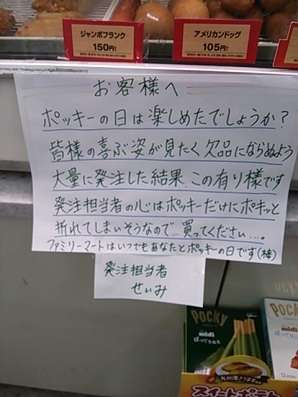 ジャンボフランク
150円
アメリカンドッグ
105円
お客様へ
ポッキーの日は楽しめたでしょうか?
皆様の喜ぶ姿が見たく欠品にならぬよう
大量に発注した結果 この有り様です
発注担当者の心はポッキーだけにポキッと
折れてしまいそうなので 買ってください…。
ファミリーマートはいつでもあなたとポッキーの日です(棒)
発注担当者
せいみ
POCKY
midi
POCKY
midi
スイートポテト